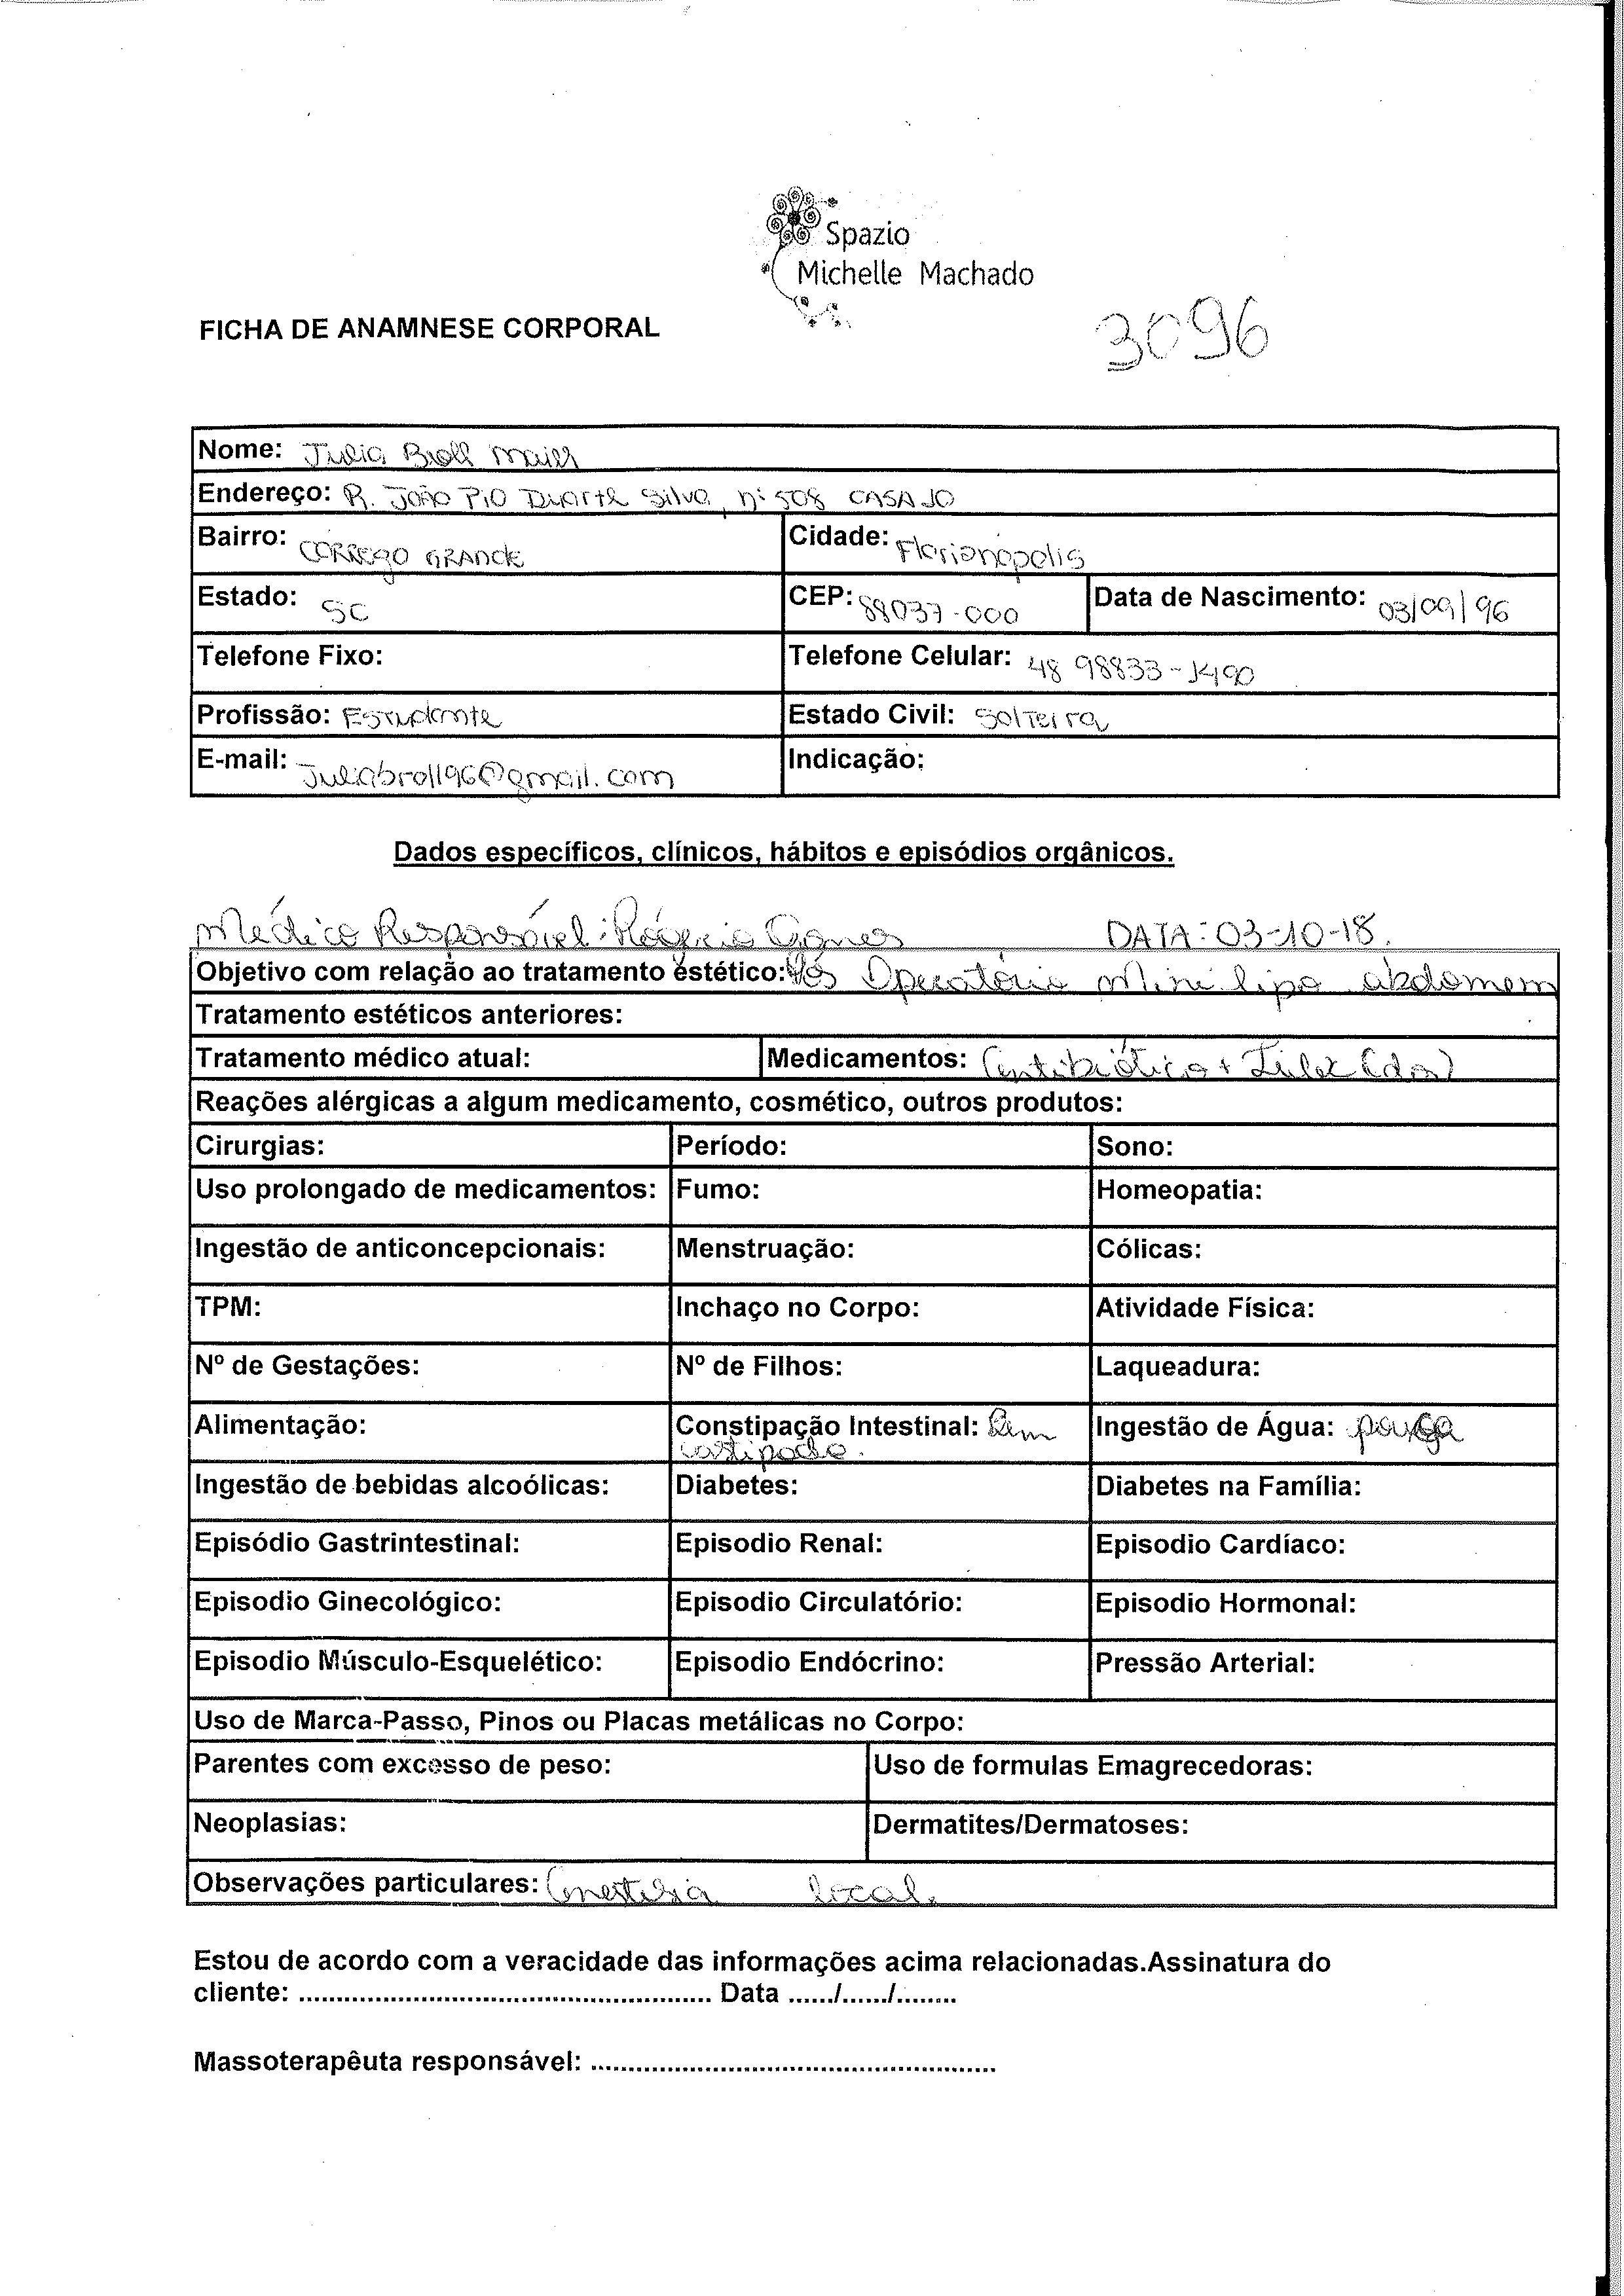 Spazio
Michelle Machado
FICHA DE ANAMNESE CORPORAL
3096
Nome: Julia Broll
Endereço: R. João Pio Duarte Silva, nº 508 CASA 10
Bairro: CORREGO GRANDE
Cidade: Florianopolis
Estado: SC
CEP: 88037-000
Data de Nascimento: 03/09/96
Telefone Fixo:
Telefone Celular: 48 98833-1490
Profissão: Estudante
Estado Civil: Solteira
E-mail: Juliabroll96@gmail.com
Indicação:
Dados específicos, clínicos, hábitos e episódios orgânicos.
Médico Responsável: Rogério Gomes DATA: 03-10-18.
Objetivo com relação ao tratamento estético: Pós Operatório Mini lipo abdomem
Tratamento estéticos anteriores:
Tratamento médico atual:
Medicamentos: (antibiótico + (dor)
Reações alérgicas a algum medicamento, cosmético, outros produtos:
Cirurgias: Período: Sono:
Uso prolongado de medicamentos: Fumo: Homeopatia:
Ingestão de anticoncepcionais: Menstruação: Cólicas:
TPM: Inchaço no Corpo: Atividade Física:
Nº de Gestações: Nº de Filhos: Laqueadura:
Alimentação: Constipação Intestinal: Bem Ingestão de Água: pouca
Ingestão de bebidas alcoólicas: Diabetes: Diabetes na Família:
Episódio Gastrintestinal: Episodio Renal: Episodio Cardíaco:
Episodio Ginecológico: Episodio Circulatório: Episodio Hormonal:
Episodio Músculo-Esquelético: Episodio Endócrino: Pressão Arterial:
Uso de Marca-Passo, Pinos ou Placas metálicas no Corpo:
Parentes com excesso de peso: Uso de formulas Emagrecedoras:
Neoplasias: Dermatites/Dermatoses:
Observações particulares: local.
Estou de acordo com a veracidade das informações acima relacionadas.Assinatura do
cliente: ........................................................ Data ....../....../........
Massoterapêuta responsável: .......................................................